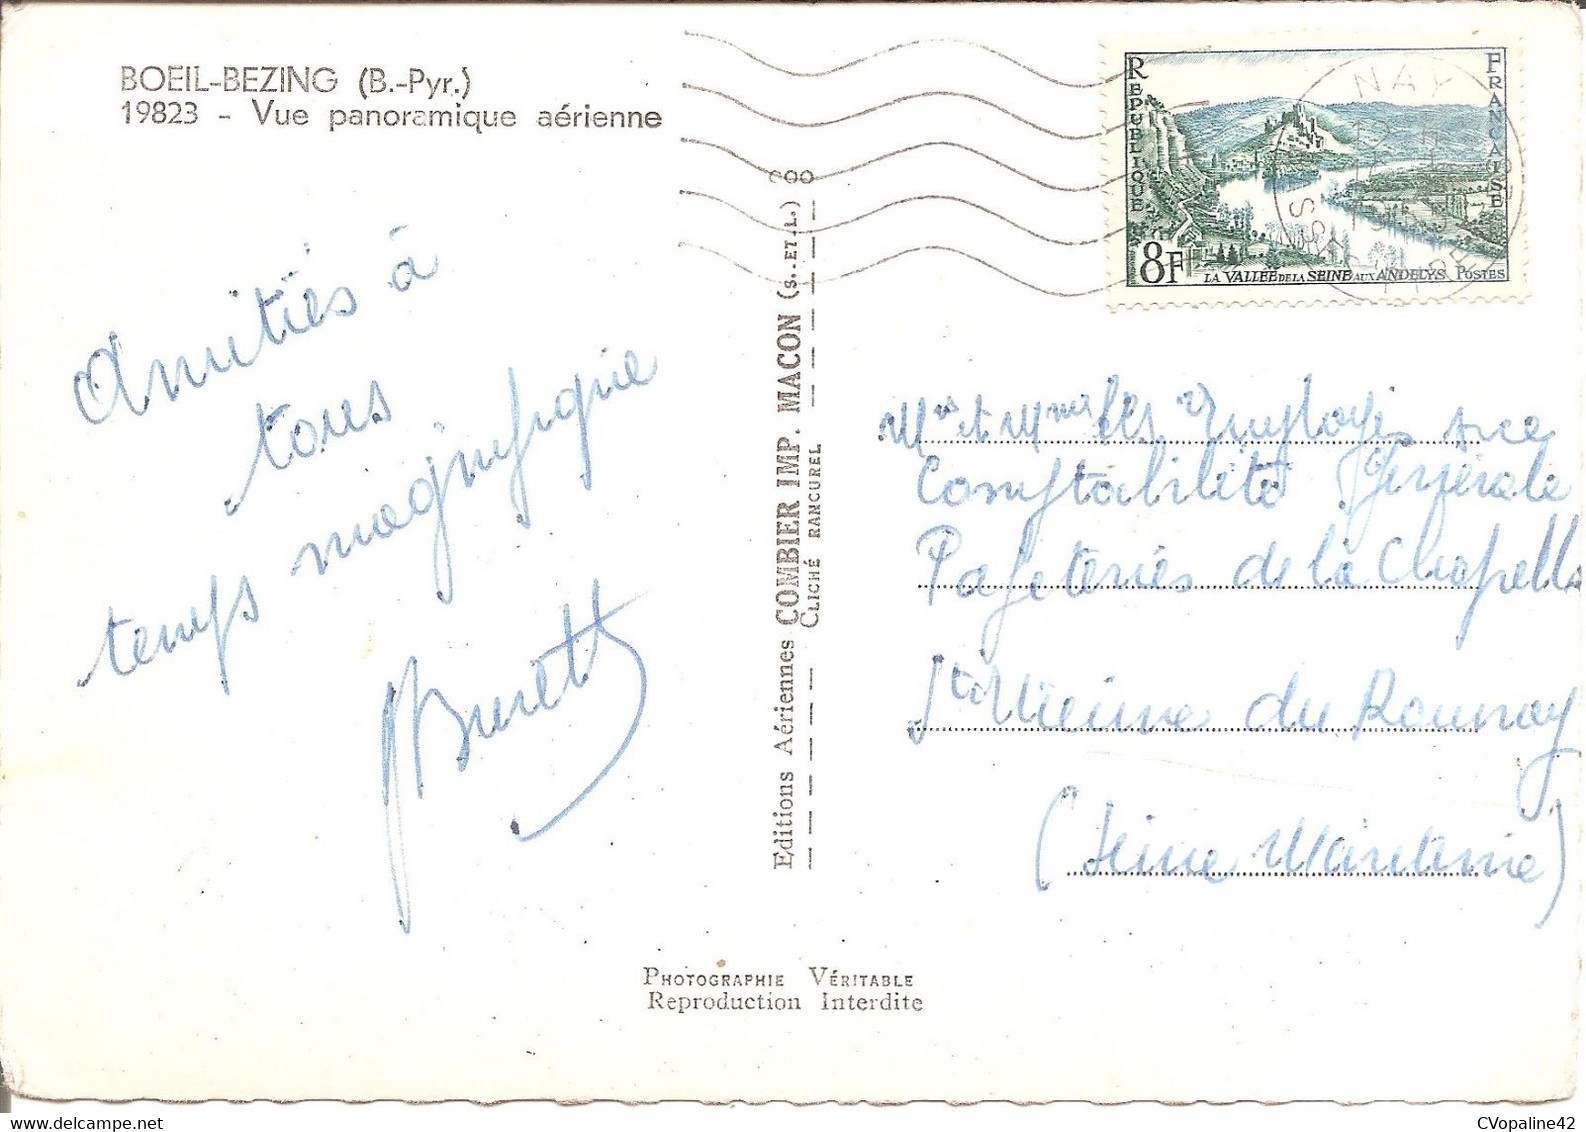 BOEIL-BEZING (B.-Pyr.)
19823 - Vue panoramique aérienne
Amitiés à
tous
temps magnifique
Burett
Editions Aériennes COMBIER IMP. MACON (S.-ET-L.)
CLICHÉ RANCUREL
RÉPUBLIQUE
FRANÇAISE
8F
LA VALLÉE DE LA SEINE AUX ANDELYS POSTES
NAY
BASSES PYRENEES
Mrs et Mmes les Employés sce
Comptabilité Générale
Papeteries de la Chapelle
St Etienne du Rouvray
(Seine Maritime)
PHOTOGRAPHIE VÉRITABLE
Reproduction Interdite
CVopaline42